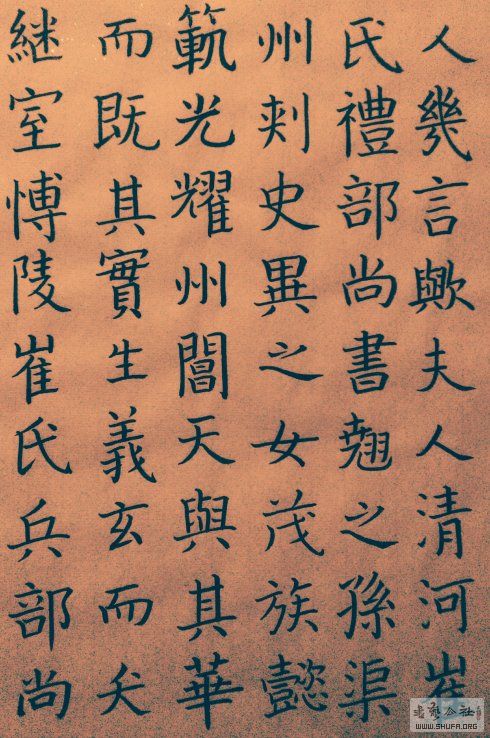 人幾言歟夫人清河崔
氏禮部尚書翹之孫渠
州刾史異之女茂族懿
範光耀州閭天與其華
而既其實生義玄而夭
継室博陵崔氏兵部尚
WWW.SHUFA.ORG